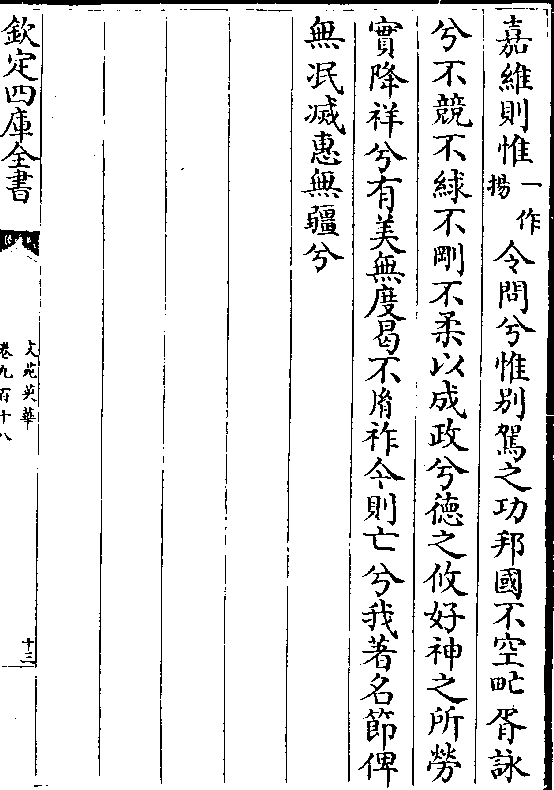 嘉維則惟一作揚令問兮惟别駕之功邦國不空甿胥詠
兮不競不絿不剛不柔以成政兮德之攸好神之所勞
實降祥兮有美無度曷不脩祚今則亡兮我著名節俾
無泯滅惠無疆兮
欽定四庫全書
文苑英華
卷九百十八
十三